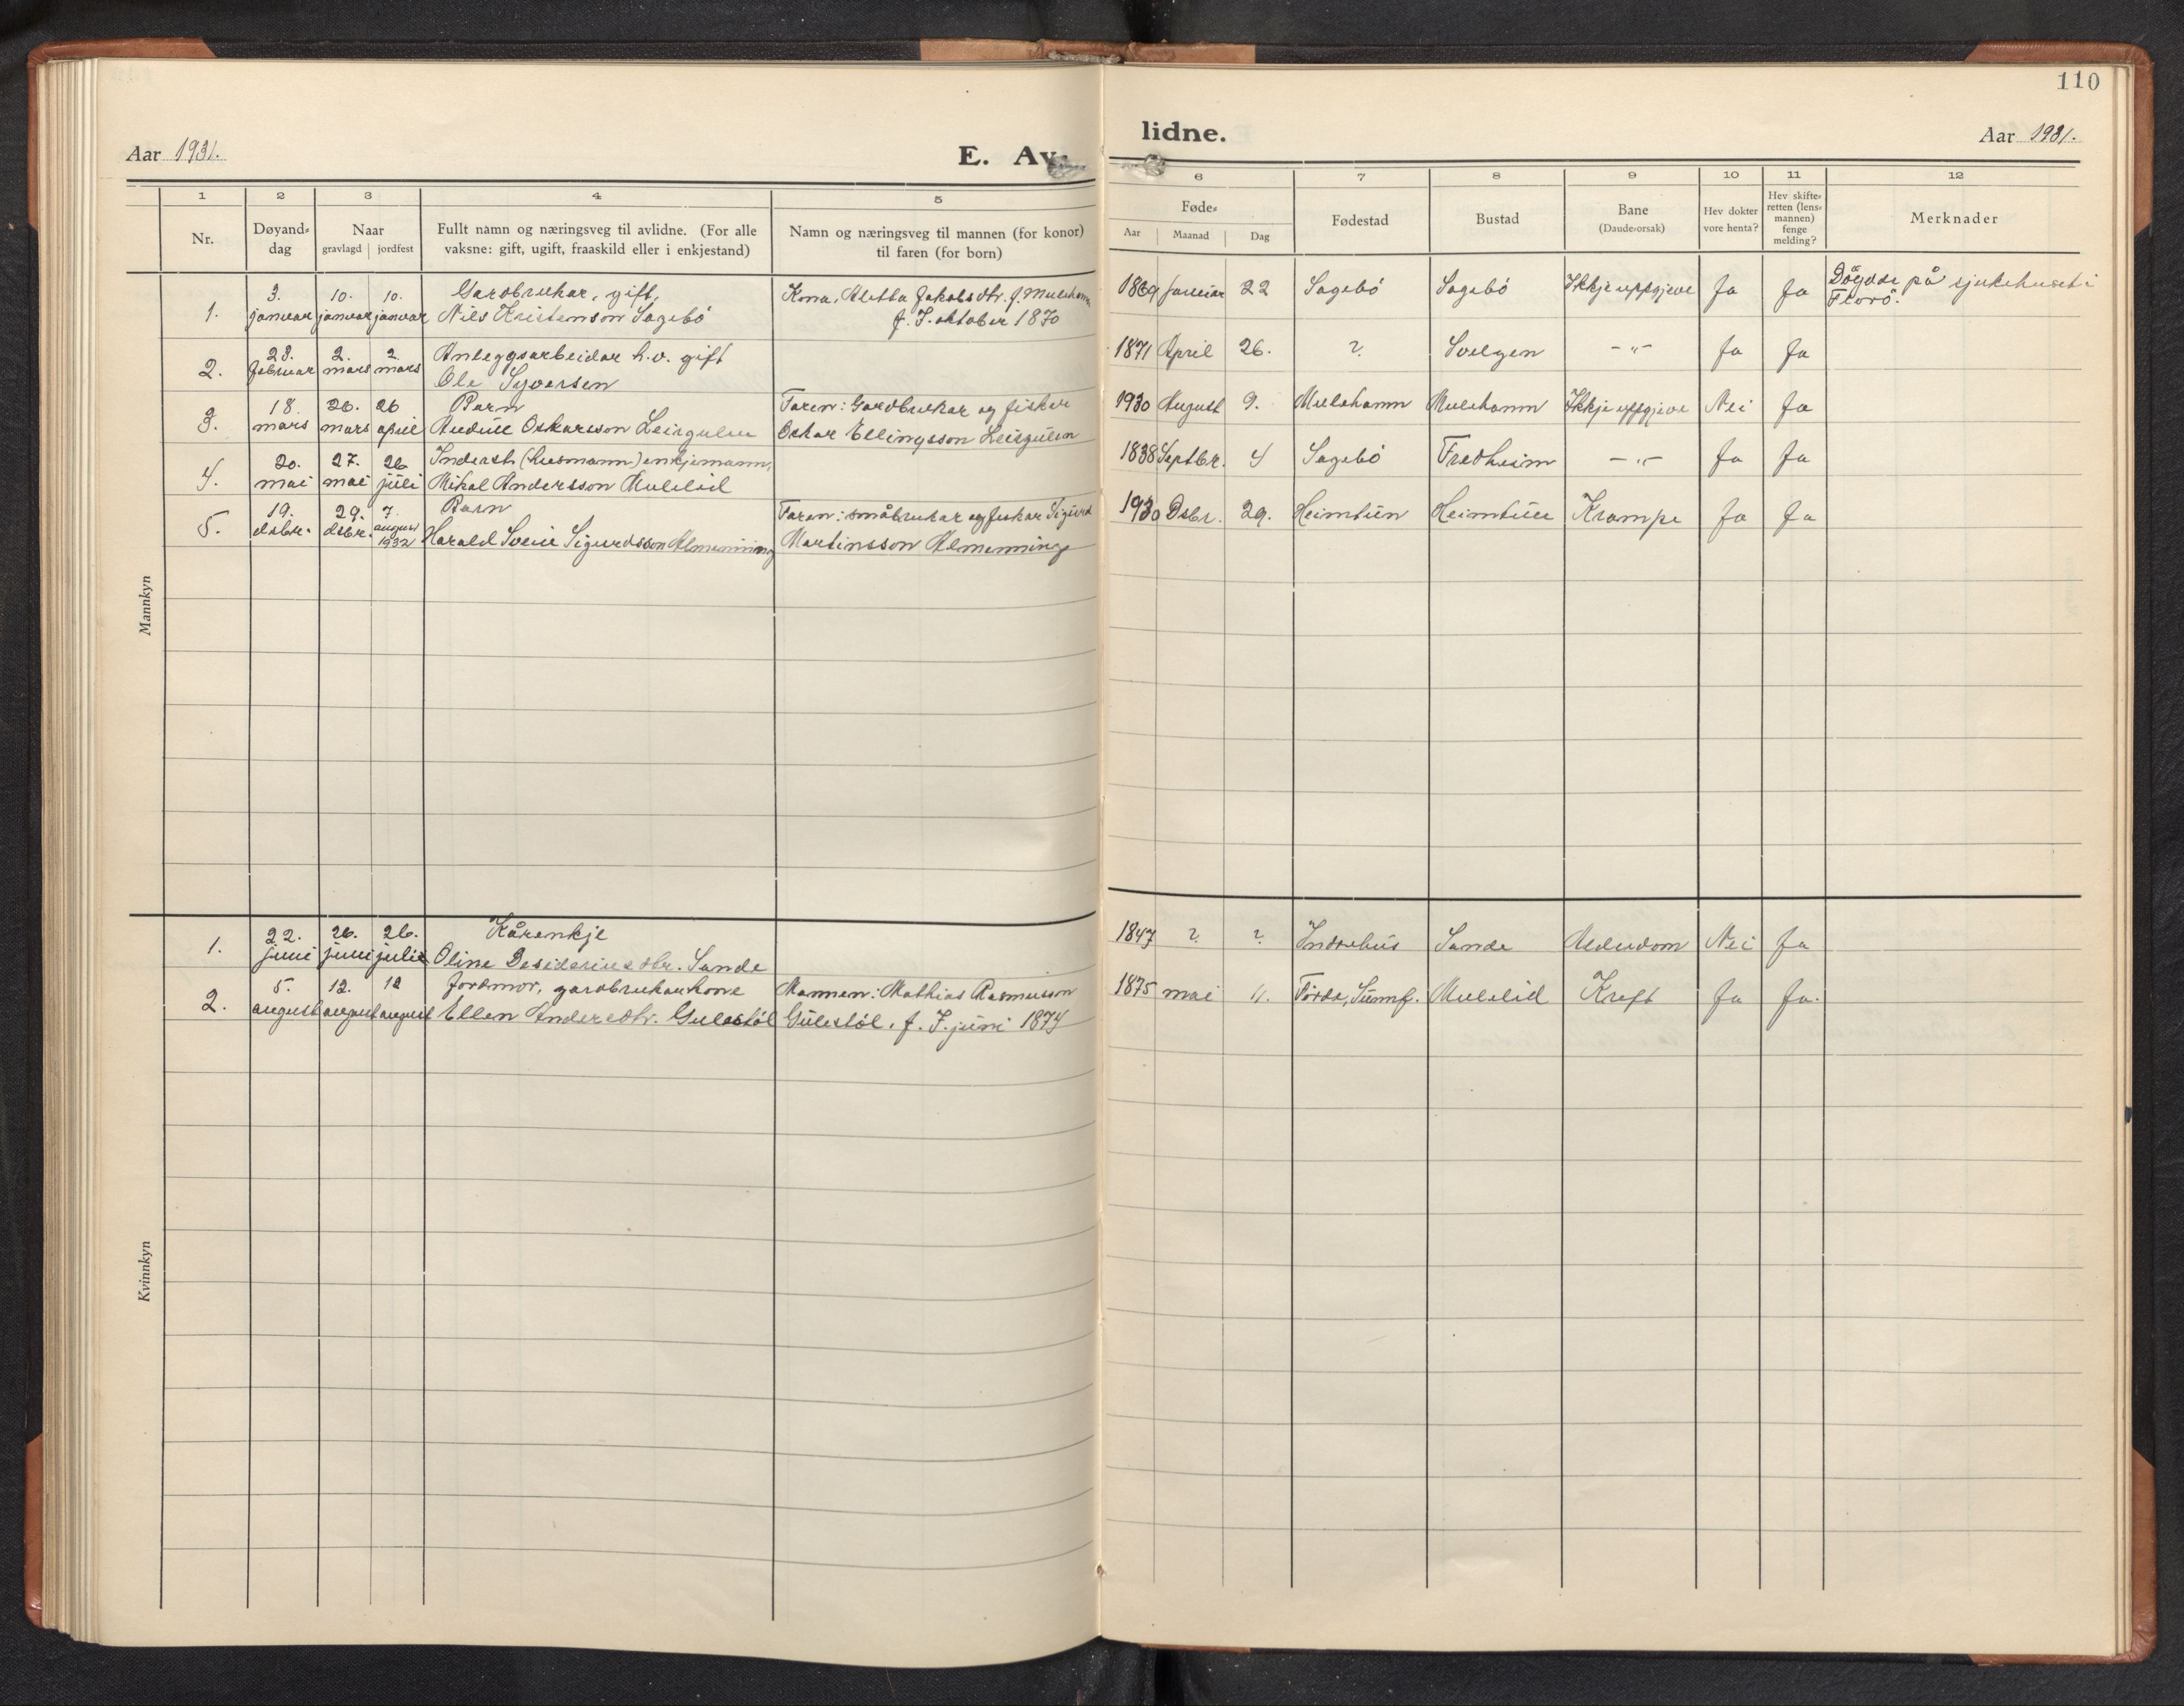 110
Aar 1931.
E. Av-
lidne.
Aar 1931.
1 2 3 4 5
6 7 8 9 10 11 12
Nr.
Døyand-
dag
Naar
gravlagd jordfest
Fullt namn og næringsveg til avlidne. (For alle
vaksne: gift, ugift, fraaskild eller i enkjestand)
Namn og næringsveg til mannen (for konor)
til faren (for born)
Føde-
Aar Maanad Dag
Fødestad
Bustad
Bane
(Daude-orsak)
Hev dokter
vore henta?
Hev skifte-
retten (lens-
mannen)
fenge
melding?
Merknader
Mannkyn
3. 10. 10. Gardbrukar, gift,
1. januar januar januar Nils Kristenson Sagebö
Kona, Aletta Jakobsdtr. f. Mulehamn
f. 7. oktober 1870
1869 Januar 22 Sagebö Sagebö Ikkje uppgjeve Ja Ja Döydde på sjukehuset i
Florö.
28. 2. 2. Anleggsarbeidar h.v. gift
2. februar mars mars Ole Syversen
1871 April 26. ? Svelgen –„– Ja Ja
18. 26. 26 Barn
3. mars mars april Audun Oskarsson Leirgulen
Faren: Gardbrukar og fisker
Oskar Ellingsson Leirgulen
1930 August 9. Mulehamn Mulehamn Ikkje uppgjeve Nei Ja
20. 27. 26 Inderst (husmann) enkjemann,
4. mai mai juli Mikal Andersson Mulelid
1838 Septbr. 4 Sagebö Fredheim –„– Ja Ja
19. 29. 7. Barn
5. dsbr. dsbr. august
1932 Harald Svein Sigurdsson Almenning
Faren: småbrukar og fiskar Sigurd
Martinsson Almenning
1930 Dsbr. 29. Heimtun Heimtun Krampe Ja Ja
Kvinnkyn
22. 26. 26. Kårenkje
1. juni juni juli Oline Desideriusdtr. Sande
1847 ? ? Indrehus Sande Alderdom Nei Ja
5. 12. 12 Jordmor, gardbrukarkone
2. august august august Ellen Andersdtr. Gulestöl
Mannen: Mathias Rasmusson
Gulestöl, f. 7. juni 1874
1875 mai 11. Förde, Sunnf. Mulelid Kreft Ja Ja.